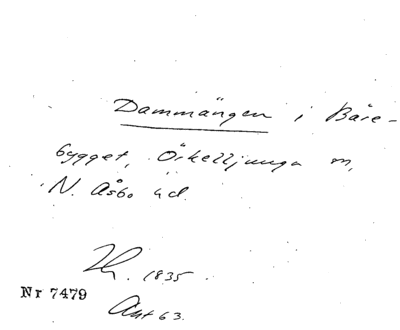 Dammängen i Båre-
bygget, Örkelljunga sn,
N. Åsbo hd.
1835.
Nr 7479
Ant 63.